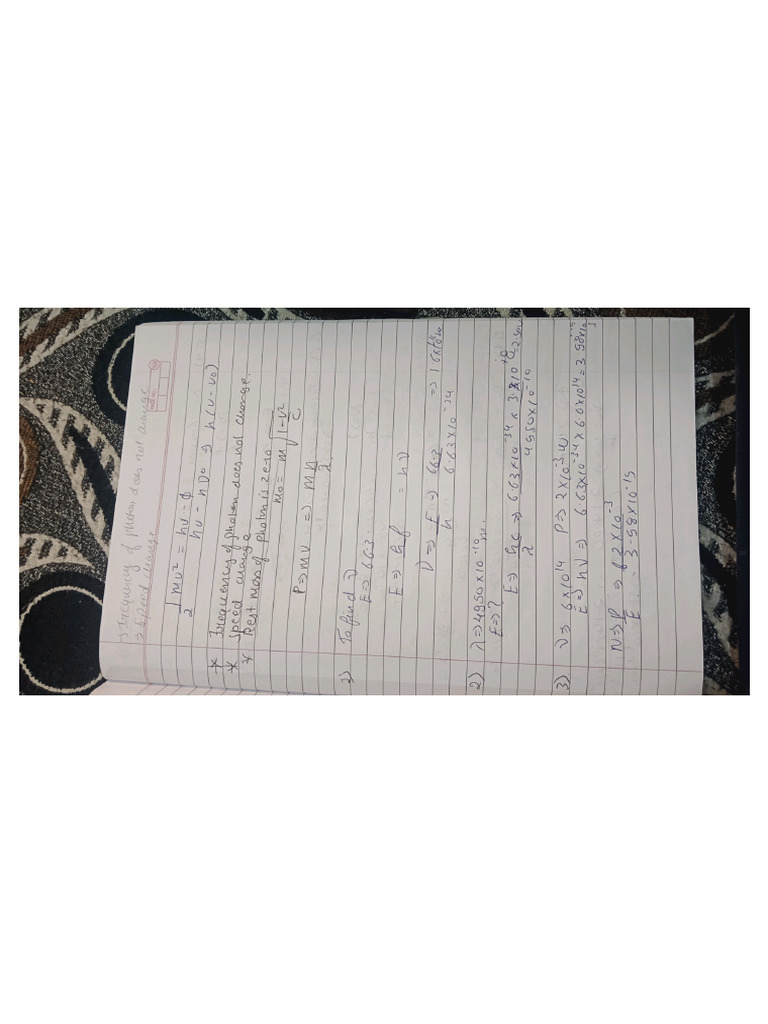 → Frequency of photon does not change
→ Speed change
1/2 mv² = hν - φ
hν - hν₀ ⇒ h(ν - ν₀)
* Frequency of photon does not change.
* Speed change
* Rest mass of photon is zero
m₀ = m√1-v²/c
P ⇒ mv ⇒
1) To find ν
E ⇒ 663
E ⇒ hf = hν
ν ⇒ E/h ⇒
6.63×10⁻³⁴
2) λ ⇒ 4950×10⁻¹⁰ m.
E ⇒ ?
E ⇒ hc/λ ⇒ 6.63×10⁻³⁴ ×
4950×10⁻¹⁰
3) ν ⇒ 6×10¹⁴ P ⇒ 2×10⁻³ W
E ⇒ hν ⇒ 6.63×10⁻³⁴ × 6.0×10¹⁴ =
N ⇒ P/E ⇒
3.98×10⁻¹⁵